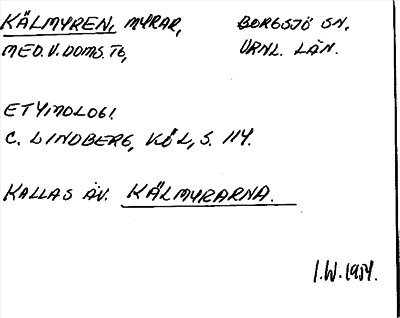 KÄLMYREN, MYRAR, BORGSJÖ SN,
MED. V. DOMS. TG, VRNL. LÄN.
ETYMOLOGI,
C. LINDBERG, KÖL, S. 114.
KALLAS ÄV. KÄLMYRARNA.
I.W. 1954.